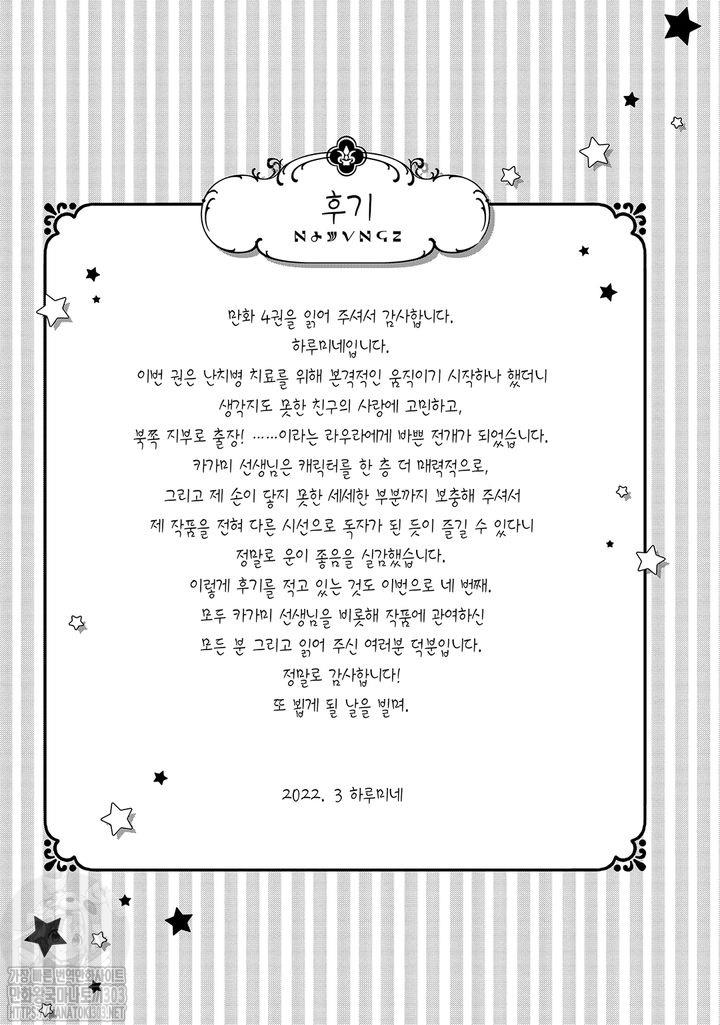 후기
만화 4권을 읽어 주셔서 감사합니다.
하루미네입니다.
이번 권은 난치병 치료를 위해 본격적인 움직이기 시작하나 했더니
생각지도 못한 친구의 사랑에 고민하고,
북쪽 지부로 출장! ……이라는 라우라에게 바쁜 전개가 되었습니다.
카가미 선생님은 캐릭터를 한 층 더 매력적으로,
그리고 제 손이 닿지 못한 세세한 부분까지 보충해 주셔서
제 작품을 전혀 다른 시선으로 독자가 된 듯이 즐길 수 있다니
정말로 운이 좋음을 실감했습니다.
이렇게 후기를 적고 있는 것도 이번으로 네 번째.
모두 카가미 선생님을 비롯해 작품에 관여하신
모든 분 그리고 읽어 주신 여러분 덕분입니다.
정말로 감사합니다!
또 뵙게 될 날을 빌며.
2022. 3 하루미네
가장 빠른 번역만화사이트
만화왕국마나토끼303
HTTPS://MANATOKI303.NET